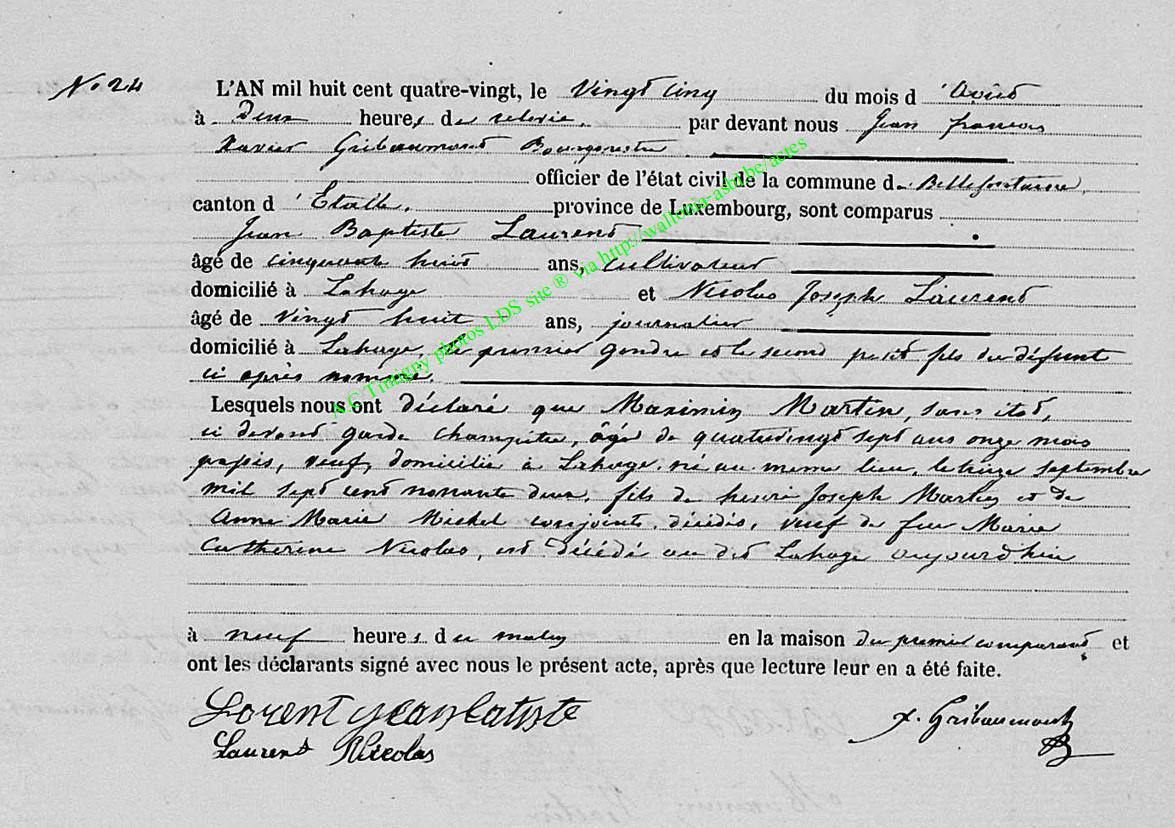 N.o 24
L'AN mil huit cent quatre-vingt, le Vingt cinq du mois d'Août
à Deux heures de relevée, par devant nous Jean françois
Xavier Gribaumont Bourgmestre
officier de l'état civil de la commune de Bellefontaine,
canton d'Etalle, province de Luxembourg, sont comparus
Jean Baptiste Laurent
âgé de cinquante huit ans, cultivateur
domicilié à Lahage et Nicolas Joseph Laurent
âgé de vingt huit ans, journalier
domicilié à Lahage, le premier gendre et le second petit fils du défunt
ci après nommé.
Lesquels nous ont déclaré que Maximin Martin, sans état,
ci devant garde champêtre, âgé de quatrevingt sept ans onze mois
passés, veuf, domicilié à Lahage, né au même lieu, le treize septembre
mil sept cent nonante deux, fils de henri Joseph Martin et de
Anne Marie Michel conjoints décédés, veuf de feu Marie
Catherine Nicolas, est décédé au dit Lahage aujourd'hui
à neuf heures du matin en la maison du premier comparant et
ont les déclarants signé avec nous le présent acte, après que lecture leur en a été faite.
Lorent jean batiste X. Gribaumont
Laurent Nicolas
A.C Tintigny photos LDS site ® via http://wallonia-asbl.be/actes